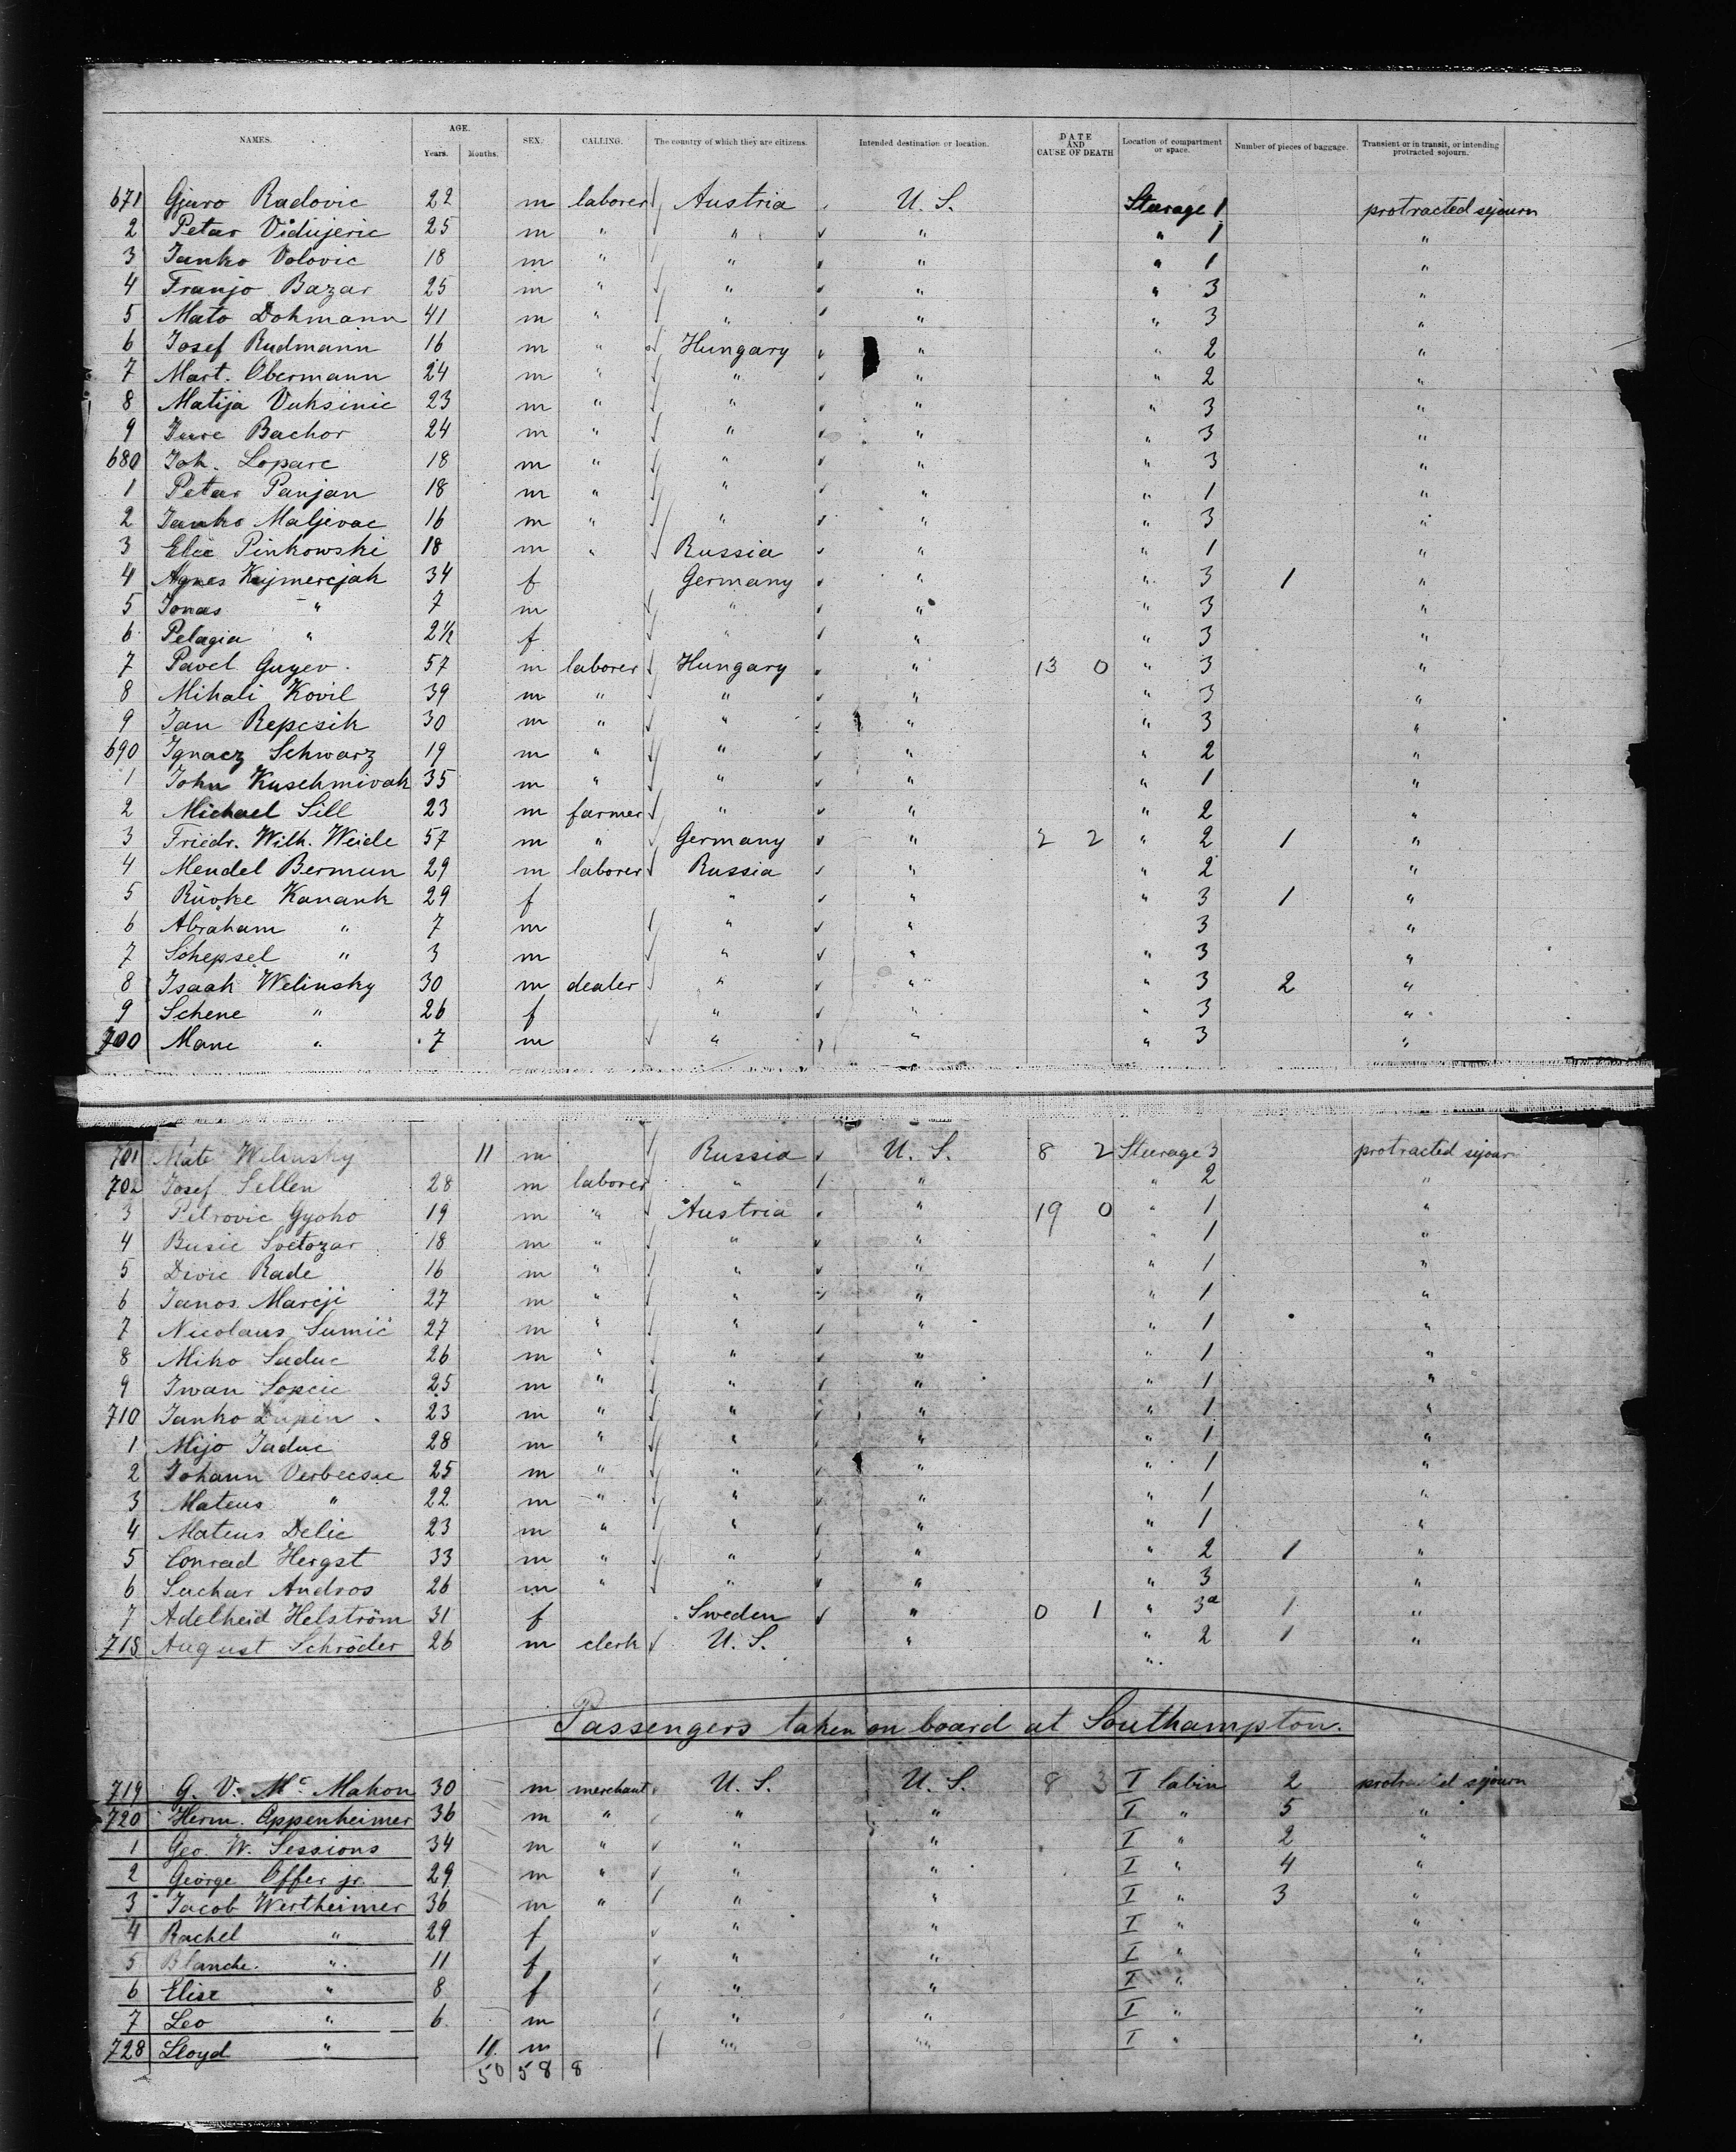 NAMES. AGE. Years. Months. SEX. CALLING. The country of which they are citizens. Intended destination or location. DATE AND CAUSE OF DEATH Location of compartment or space. Number of pieces of baggage. Transient or in transit, or intending protracted sojourn.
671 Gjuro Radovic 22 m laborer Austria U. S. Steerage 1 protracted sejourn
2 Petar Vidujeric 25 m " " " " 1 "
3 Janko Volovic 18 m " " " " 1 "
4 Franjo Bazar 25 m " " " " 3 "
5 Mato Dohmann 41 m " " " " 3 "
6 Josef Rudmann 16 m " Hungary " " 2 "
7 Mart. Obermann 24 m " " " " 2 "
8 Matija Vuksinic 23 m " " " " 3 "
9 Jure Bachor 24 m " " " " 3 "
680 Joh. Lopare 18 m " " " " 3 "
1 Petar Panjan 18 m " " " " 1 "
2 Janko Maljevac 16 m " " " " 3 "
3 Elie Pinkowski 18 m " Russia " " 1 "
4 Agnes Kujmercjak 34 f Germany " " 3 1 "
5 Jonas " 7 m " " " 3 "
6 Pelagia " 2½ f " " " 3 "
7 Pavel Guyev 57 m laborer Hungary " 13 0 " 3 "
8 Mihali Kovil 39 m " " " " 3 "
9 Jan Repcsik 30 m " " " " 3 "
690 Ignacz Schwarz 19 m " " " " 2 "
1 John Kuschmivak 35 m " " " " 1 "
2 Michael Sill 23 m farmer " " " 2 "
3 Friedr. Wilh. Weide 57 m " Germany " 2 2 " 2 1 "
4 Mendel Bermun 29 m laborer Russia " " 2 "
5 Ruoke Kanank 29 f " " " 3 1 "
6 Abraham " 7 m " " 3 "
7 Schepsel " 3 m " " " 3 "
8 Isaak Welinsky 30 m dealer " " " 3 2 "
9 Schene " 26 f " " " 3 "
700 Mane " 7 m " " " 3 "
701 Mate Welinsky 11 m Russia U. S. 8 2 Steerage 3 protracted sejour
702 Josef Sellen 28 m laborer " " " 2 "
3 Petrovic Gyoko 19 m " Austria " 19 0 " 1 "
4 Busic Svetozar 18 m " " " " 1 "
5 Divic Rade 16 m " " " " 1 "
6 Janos Marcji 27 m " " " " 1 "
7 Nicolaus Sumić 27 m " " " " 1 "
8 Miko Saduc 26 m " " " " 1 "
9 Iwan Sopcic 25 m " " " " 1 "
710 Janko Lupin 23 m " " " " 1 "
1 Mijo Jaduc 28 m " " " " 1 "
2 Johann Verbecsac 25 m " " " " 1 "
3 Mateus " 22 m " " " " 1 "
4 Mateus Delic 23 m " " " " 1 "
5 Conrad Hergst 33 m " " " " 2 1 "
6 Suchar Andros 26 m " " " " 3 "
7 Adelheid Helström 31 f Sweden " 0 1 " 3a 1 "
718 August Schröder 26 m clerk U. S. " " 2 1 "
"
Passengers taken on board at Southampton.
719 G. V. Mc Mahon 30 m merchant U. S. U. S. 8 3 I Cabin 2 protracted sejourn
720 Herm. Oppenheimer 36 m " " " I " 5 "
1 Geo. W. Sessions 34 m " " " I " 2 "
2 George Offer jr. 29 m " " " I " 4 "
3 Jacob Wertheimer 36 m " " " I " 3 "
4 Rachel " 29 f " " I " "
5 Blanche " 11 f " " I " "
6 Elise " 8 f " " I " "
7 Leo " 6 m " " I " "
728 Lloyd " 11 m " " I " "
50 58 8